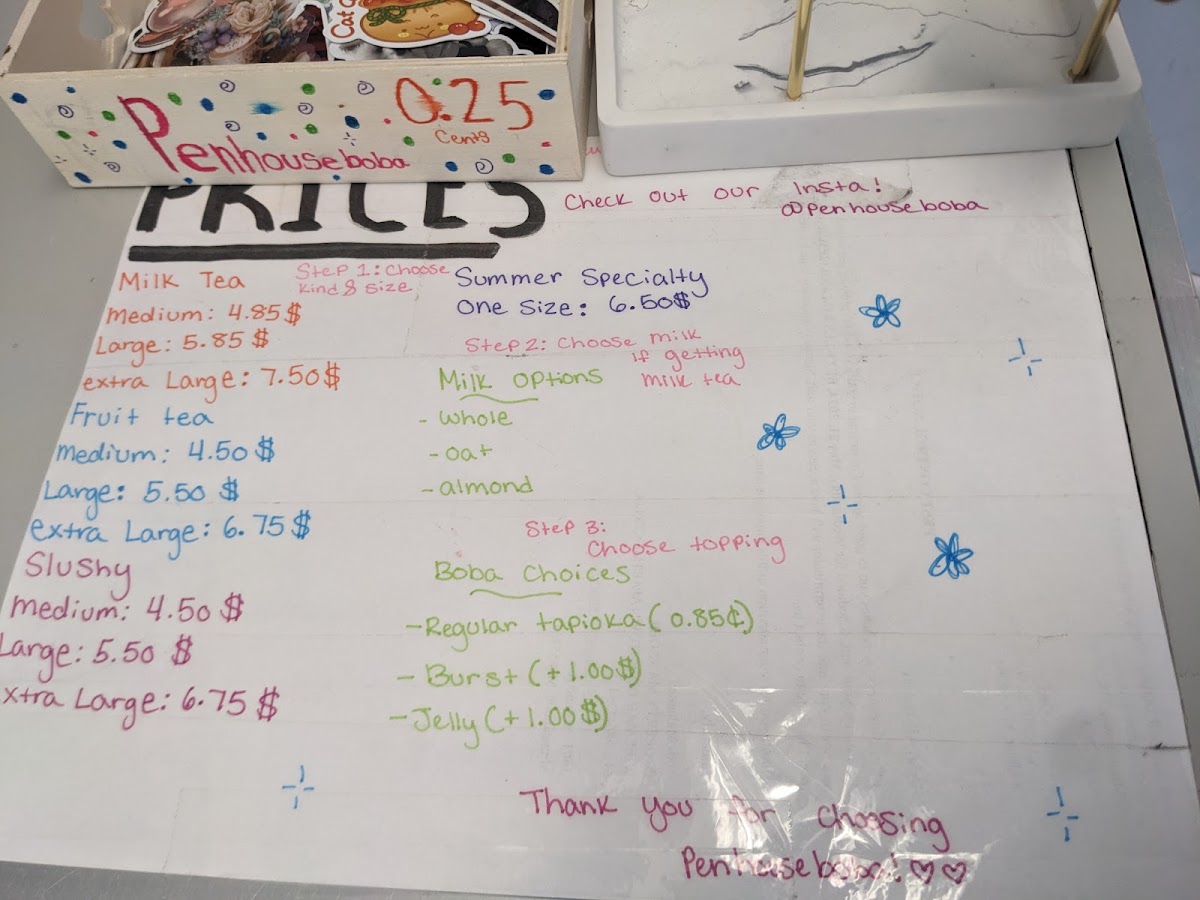 Cat
0.25
Cents
Penhouseboba
PRICES
Check out our Insta!
@penhouseboba
Milk Tea
Medium: 4.85$
Large: 5.85$
extra Large: 7.50$
Step 1: Choose
kind & size
Fruit tea
Medium: 4.50$
Large: 5.50$
extra Large: 6.75$
Slushy
Medium: 4.50$
Large: 5.50$
xtra Large: 6.75$
Summer Specialty
One Size: 6.50$
Step 2: Choose milk
if getting
milk tea
Milk Options
- whole
- oat
- almond
Step 3:
Choose topping
Boba Choices
- Regular tapioka (0.85¢)
- Burst (+1.00$)
- Jelly (+1.00$)
Thank you for choosing
Penhouseboba! ♡♡